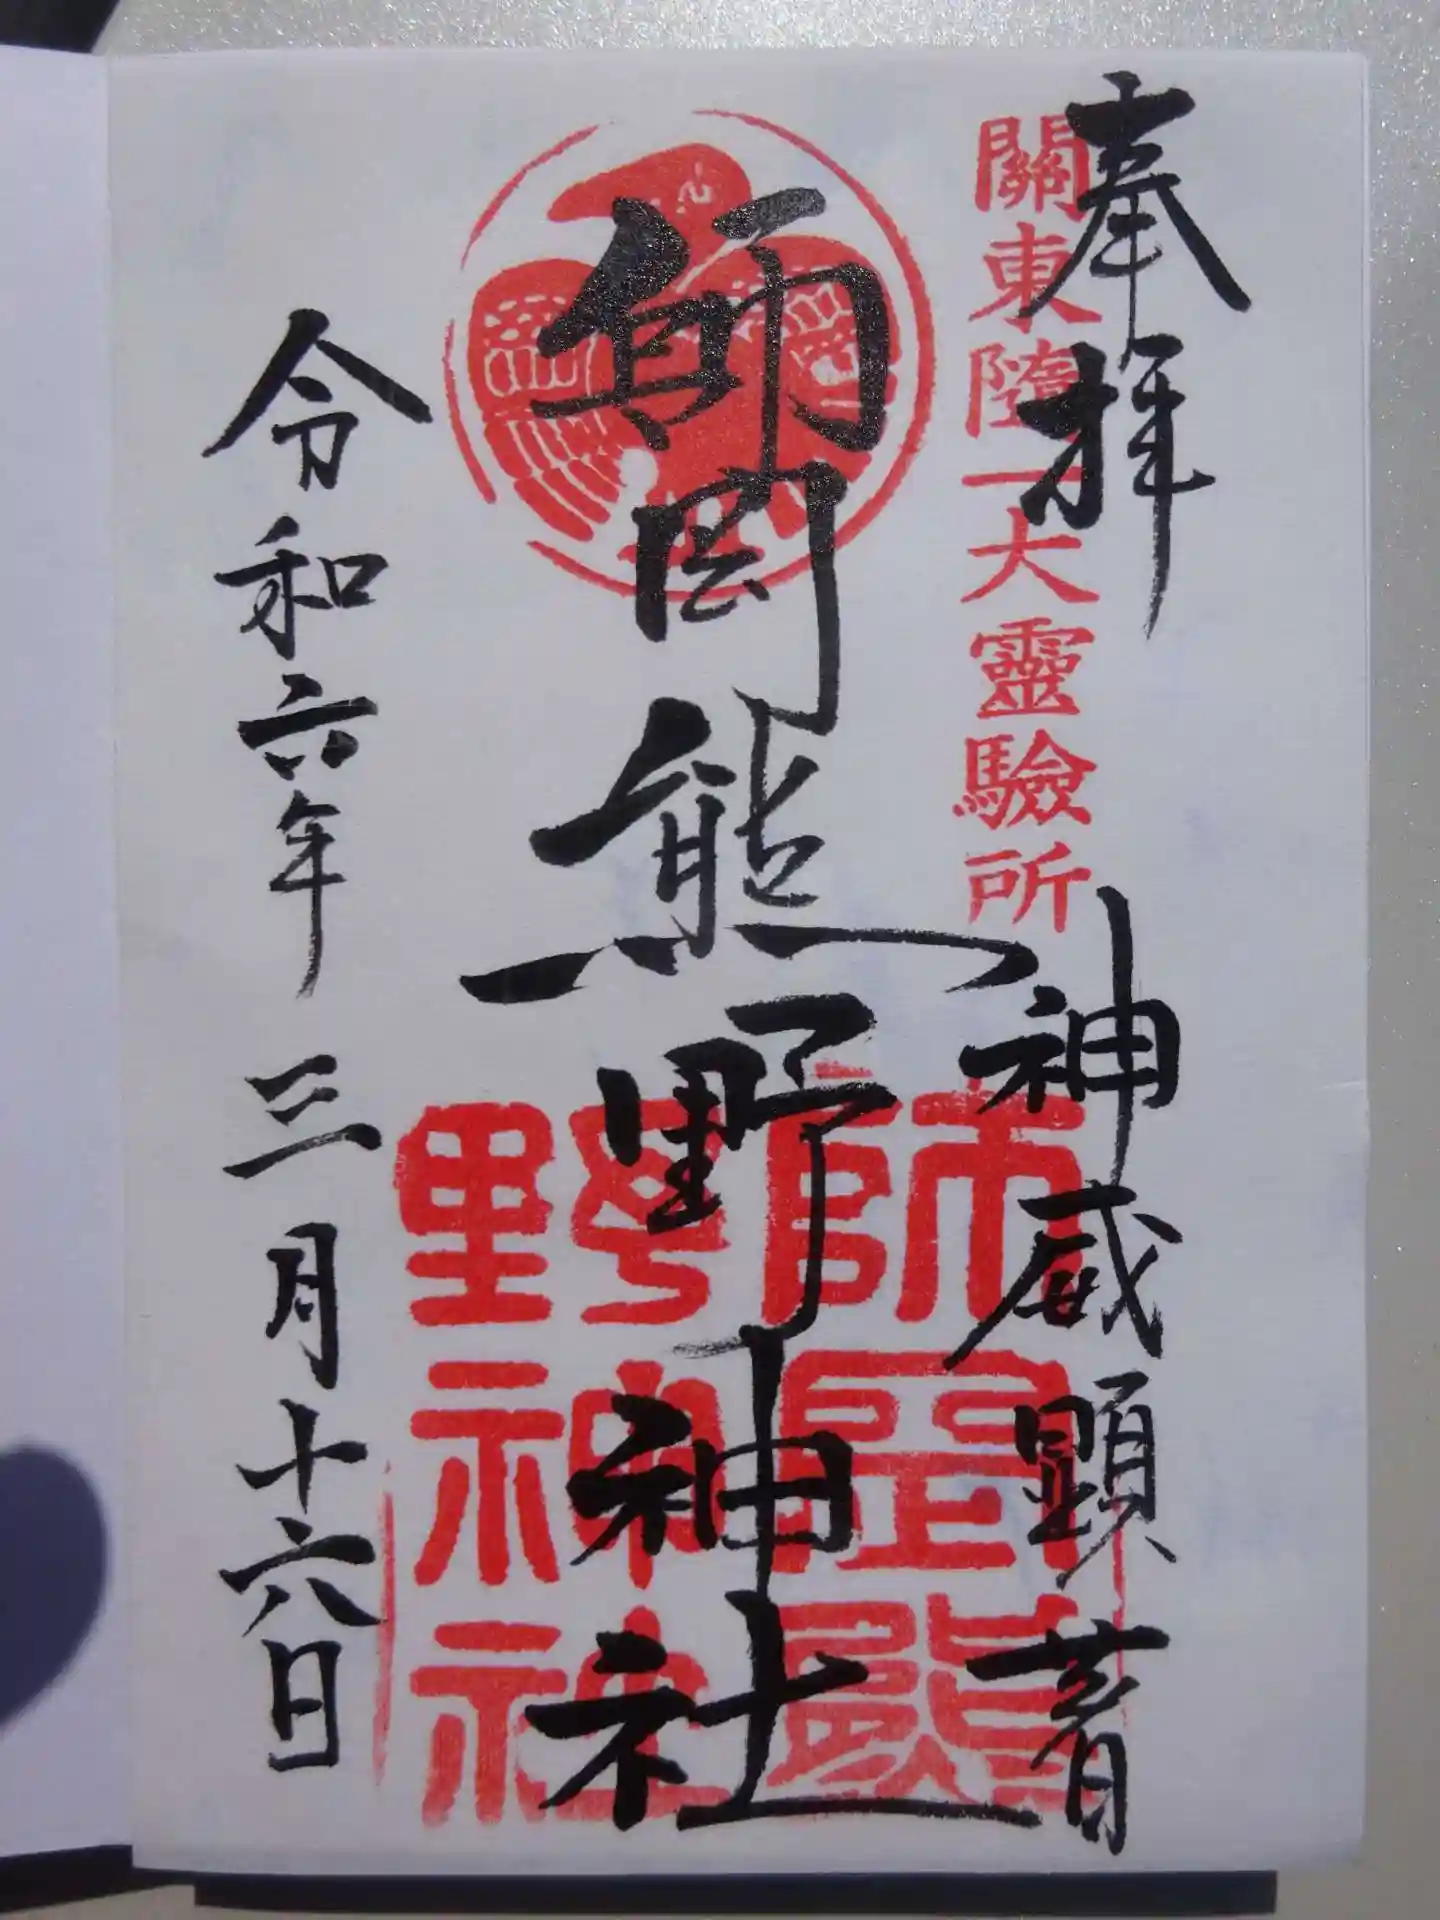 奉拝
神威顕著
關東随一大靈驗所
師岡熊野神社
師岡熊野神社
令和六年三月十六日